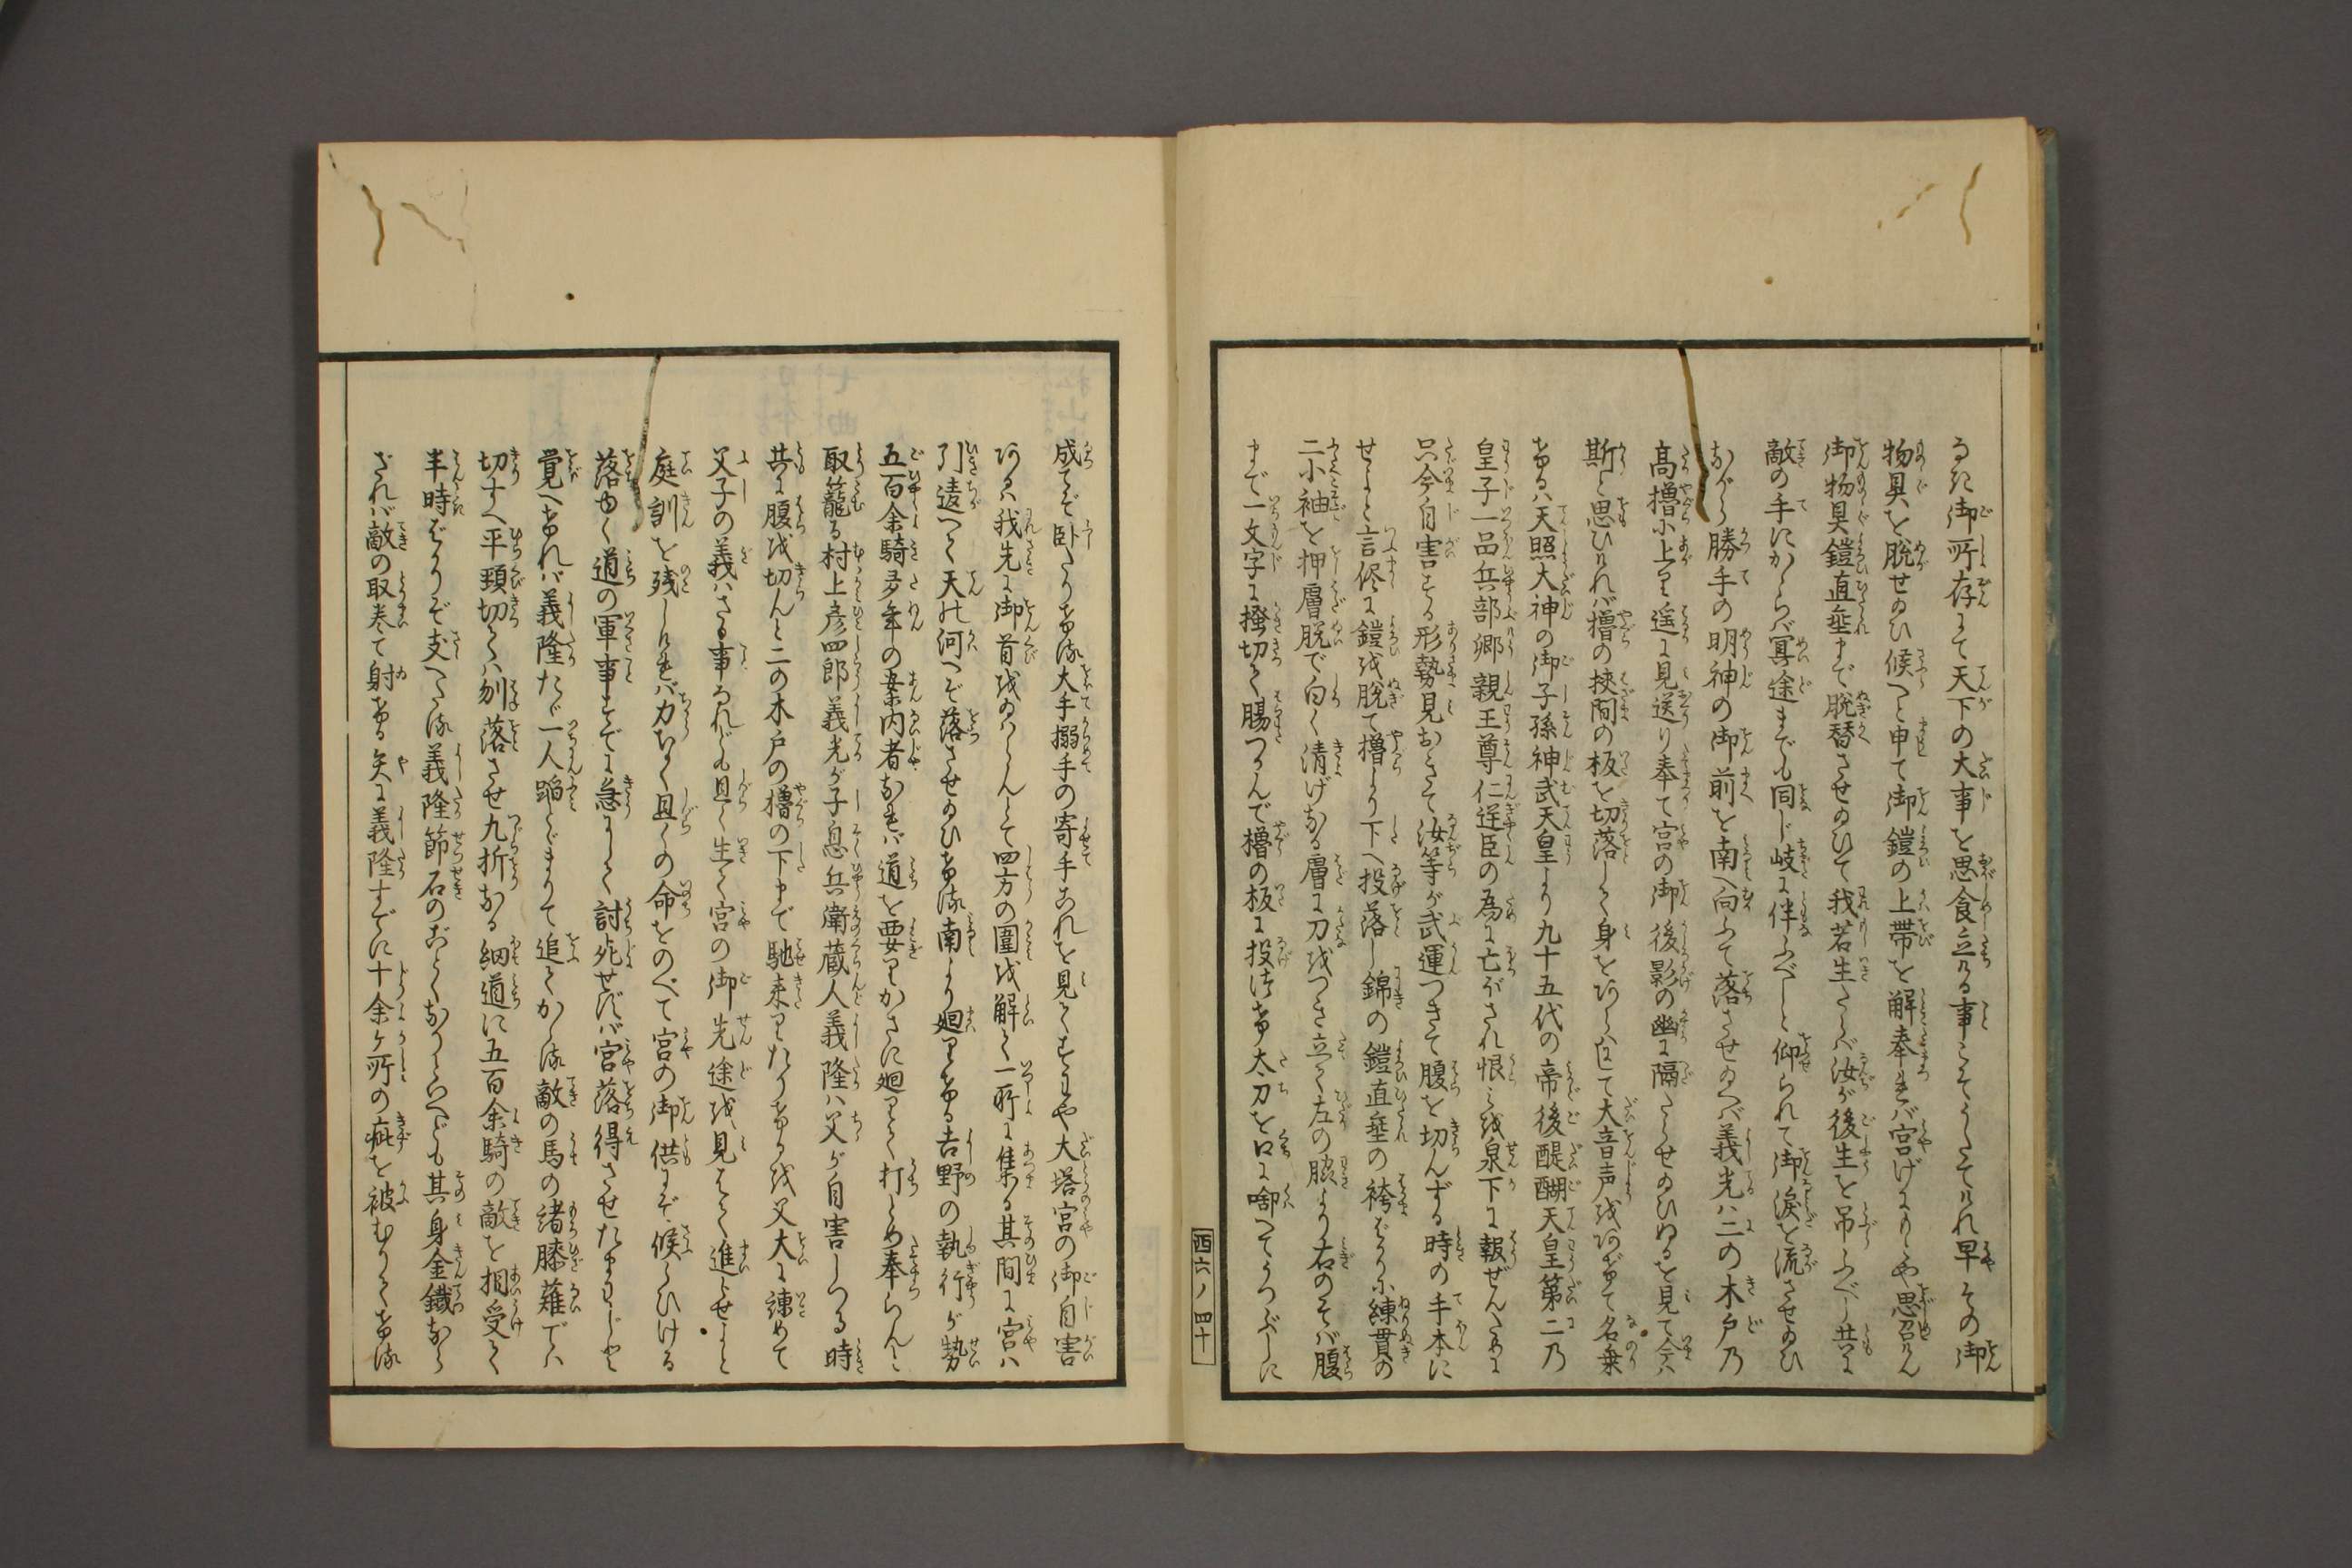 るき御所存にて天下の大事を思食立ける事こそうたてけれ早その御
物具を脱せ給ひ候へと申て御鎧の上帯を解奉れバ宮げにもとや思召けん
御物具鎧直垂まで脱替させ給ひて我若生たらバ汝が後生を吊ふべし共に
敵の手にかゝらバ冥途までも同じ岐に伴ふべしと仰られて御涙を流させ給ひ
ながら勝手の明神の御前を南へ向ふて落させ給へバ義光ハ二の木戸乃
高櫓に上り遥に見送り奉て宮の御後影の幽に隔たらせ給ひぬるを見て今ハ
斯と思ひけれバ櫓の挾間の板を切落して身をあらはして大音声をあげて名乗
けるハ天照大神の御子孫神武天皇より九十五代の帝後醍醐天皇第二乃
皇子一品兵部卿親王尊仁逆臣の為に亡ぼされ恨を泉下に報ぜんために
只今自害する形勢見おきて汝等が武運つきて腹を切んずる時の手本に
せよと言侭に鎧を脱て櫓より下へ投落し錦の鎧直垂の袴ばかりに練貫の
二小袖を押膚脱で白く清げなる膚に刀をつき立て左の脇より右のそバ腹
まで一文字に掻切て腸つかんで櫓の板に投つけ太刀を口に啣へてうつぶしに
西六ノ四十
成てぞ臥たりける大手搦手の寄手これを見てすハや大塔宮の御自害
あるハ我先に御首を給らんとて四方の圍を解て一所に集る其間に宮ハ
引違へて天の河へぞ落させ給ひける南より廻りける吉野の執行が勢
五百余騎多年の案内者なれバ道を要りかさに廻りて打とめ奉らんと
取籠る村上彦四郎義光が子息兵衛蔵人義隆ハ父が自害しつる時
共に腹を切んと二の木戸の櫓の下まで馳来りたりけるを父大に諫めて
父子の義ハさる事なれども且く生て宮の御先途を見はて進らせよと
庭訓を残しけれバ力なく且くの命をのべて宮の御供にぞ候らひける
落ゆく道の軍事すでに急にして討死せずバ宮落得させたまはじと
覚へけれバ義隆たゞ一人蹈とゞまりて追てかゝる敵の馬の諸膝薙でハ
切すへ平頸切てハ刎落させ九折なる細道に五百余騎の敵を相受て
半時ばかりぞ支へたる義隆節石のごとくなりといへども其身金鐵なら
ざれバ敵の取巻て射ける矢に義隆すでに十余ケ所の疵を被むりてける